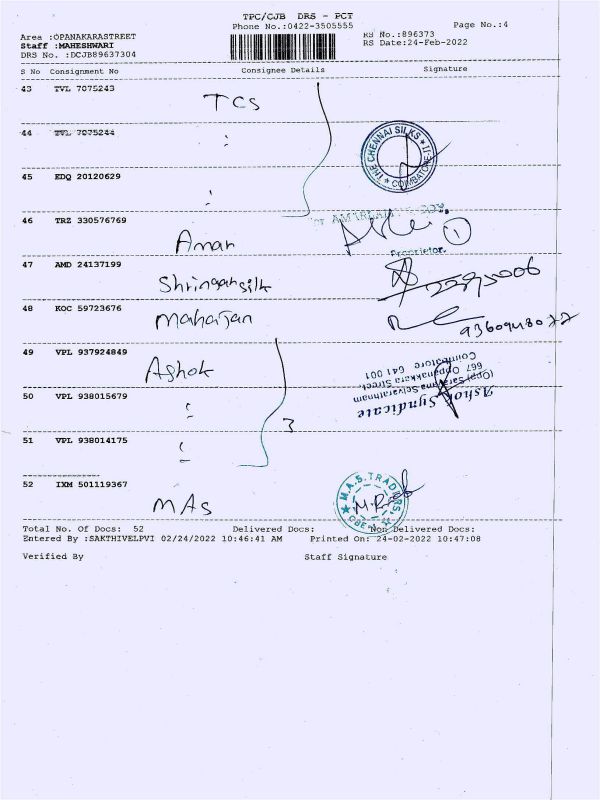 TPC/CJB DRS - PCT
Phone No.:0422-3505555
Page No.:4
Area :OPANAKARASTREET
Staff :MAHESHWARI
DRS No. :DCJB89637304
RS No.:896373
RS Date:24-Feb-2022
S No Consignment No Consignee Details Signature
43 TVL 7075243
TCS
44 TVL 7075244
THE CHENNAI SILKS
COIMBATORE
45 EDQ 20120629
46 TRZ 330576769
Aman
1
Proprietor.
47 AMD 24137199
Shringar silk
48 KOC 59723676
Mahajan
9360948022
49 VPL 937924849
Ashok
Ashok Syndicate
(Opp) Sarathama Selvarathnam
667, Oppanakkara Street,
Coimbatore 641 001
50 VPL 938015679
51 VPL 938014175
3
52 IXM 501119367
MAS
M.A.S. TRADERS
CBE-1
Total No. Of Docs: 52 Delivered Docs: Non Delivered Docs:
Entered By :SAKTHIVELPVI 02/24/2022 10:46:41 AM Printed On: 24-02-2022 10:47:08
Verified By Staff Signature